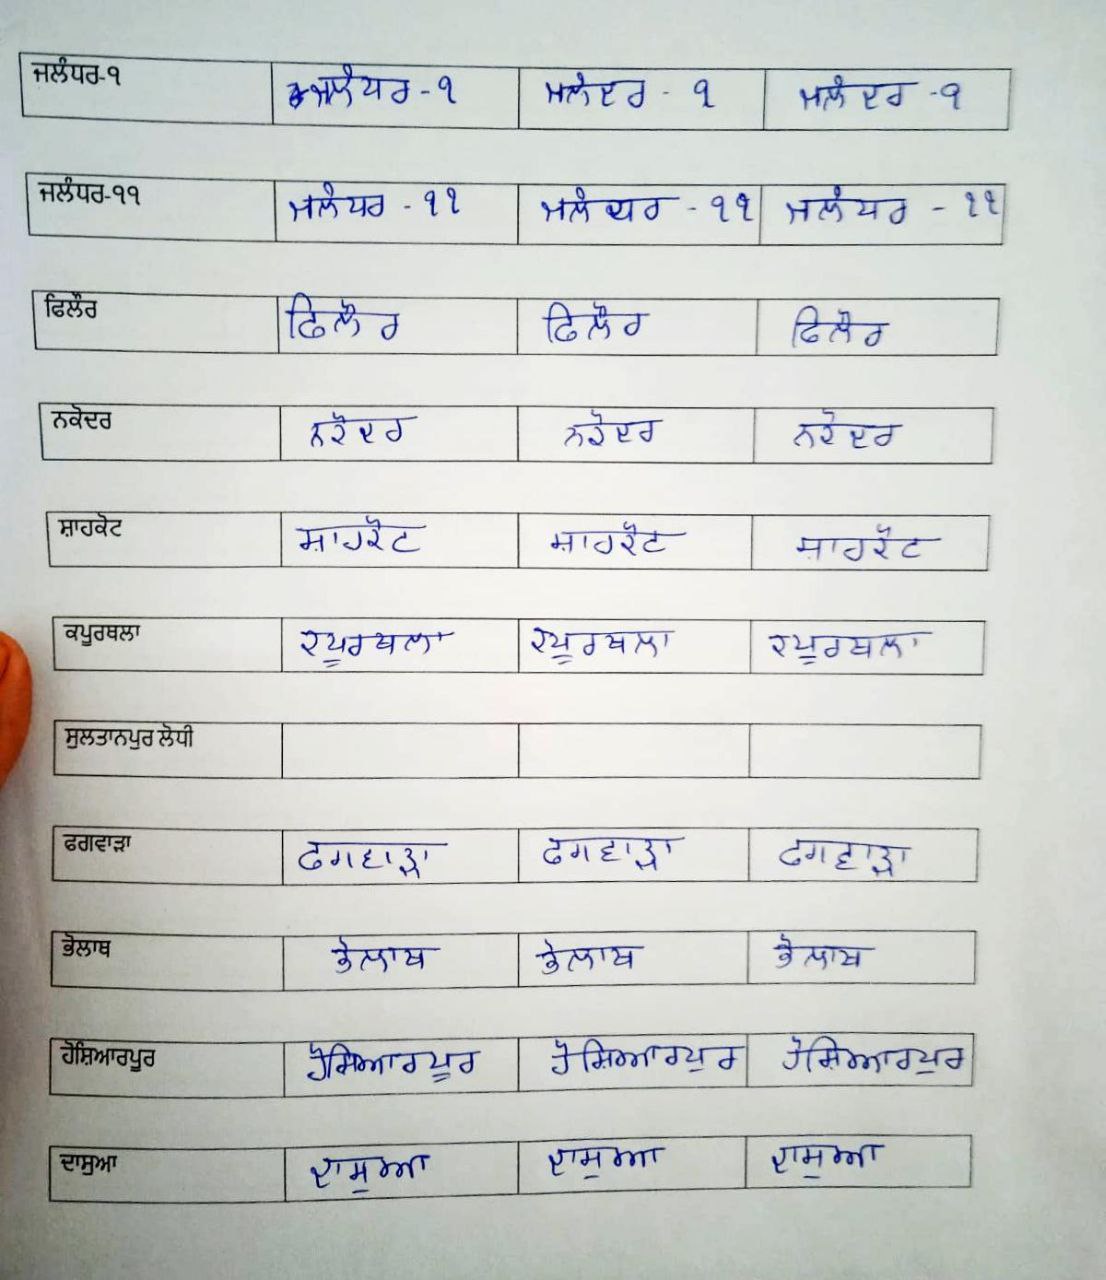 ਜਲੰਧਰ-੧ ਜਲੰਧਰ - ੧ ਜਲੰਦਰ - ੧ ਜਲੰਦਰ - ੧
ਜਲੰਧਰ-੧੧ ਜਲੰਧਰ - ੧੧ ਜਲੰਧਰ - ੧੧ ਜਲੰਧਰ - ੧੧
ਫਿਲੌਰ ਫਿਲੌਰ ਫਿਲੌਰ ਫਿਲੌਰ
ਨਕੋਦਰ ਨਕੋਦਰ ਨਕੋਦਰ ਨਕੋਦਰ
ਸ਼ਾਹਕੋਟ ਸ਼ਾਹਕੋਟ ਸ਼ਾਹਕੋਟ ਸ਼ਾਹਕੋਟ
ਕਪੂਰਥਲਾ ਕਪੂਰਥਲਾ ਕਪੂਰਥਲਾ ਕਪੂਰਥਲਾ
ਸੁਲਤਾਨਪੁਰ ਲੋਧੀ
ਫਗਵਾੜਾ ਫਗਵਾੜਾ ਫਗਵਾੜਾ ਫਗਵਾੜਾ
ਭੋਲਾਥ ਭੋਲਾਥ ਭੋਲਾਥ ਭੋਲਾਥ
ਹੋਸ਼ਿਆਰਪੂਰ ਹੋਸ਼ਿਆਰਪੂਰ ਹੋਸ਼ਿਆਰਪੁਰ ਹੋਸ਼ਿਆਰਪੁਰ
ਦਾਸੁਆ ਦਾਸੁਆ ਦਾਸੁਆ ਦਾਸੁਆ